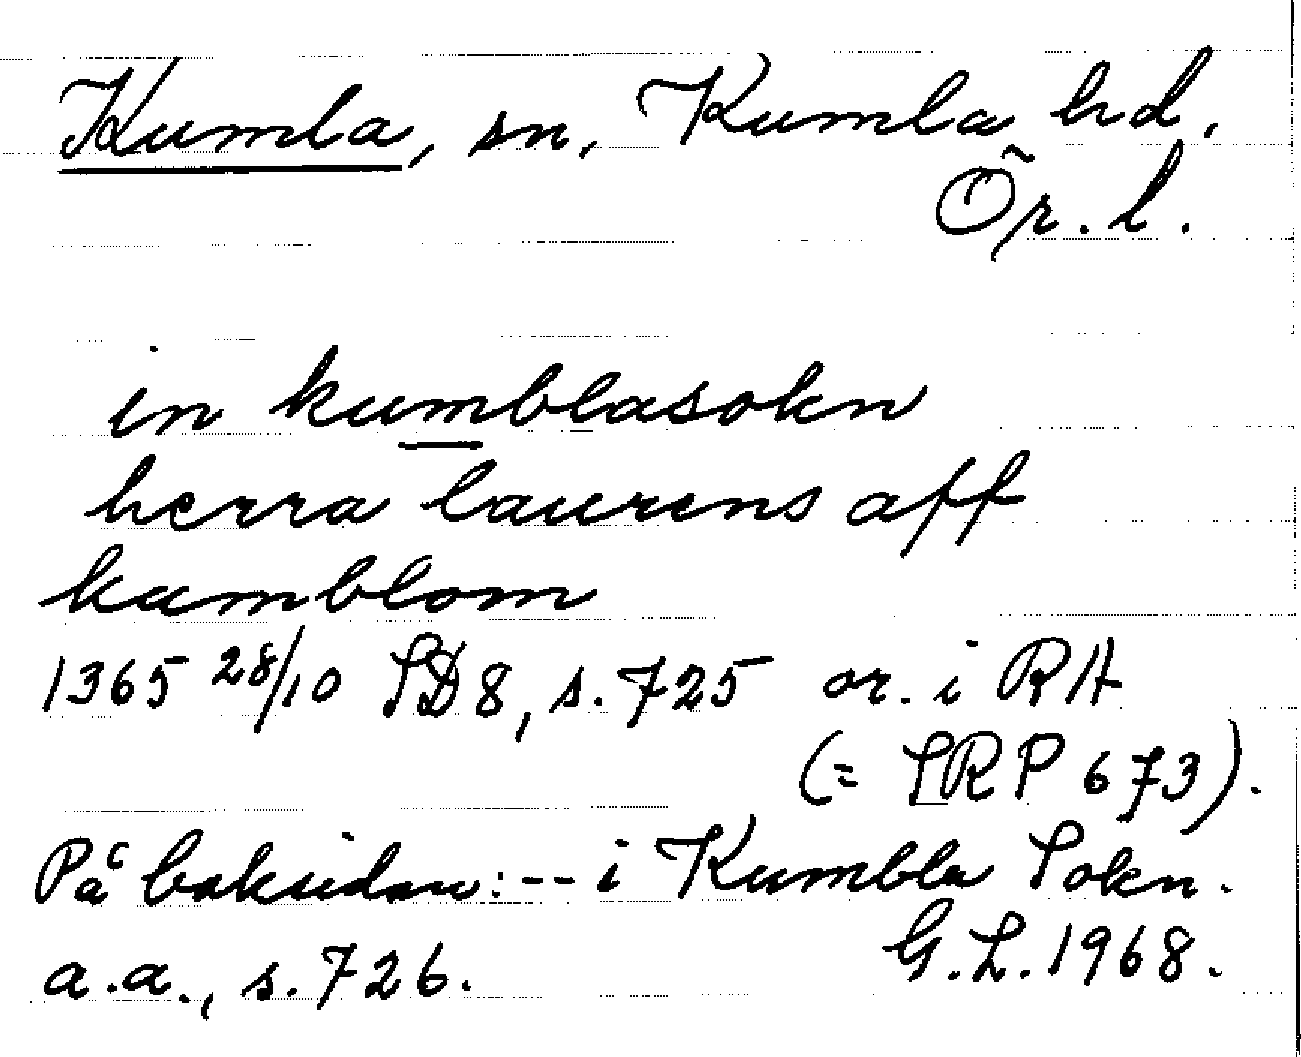 Kumla, sn, Kumla hd.
Ör. l.
in kumblasokn
herra laurens aff
kumblom
1365 28/10 SD8, s. 725 or. i RA
(= SRP 673).
På baksidan: -- i Kumbla Sokn.
a.a., s. 726. G.L. 1968.